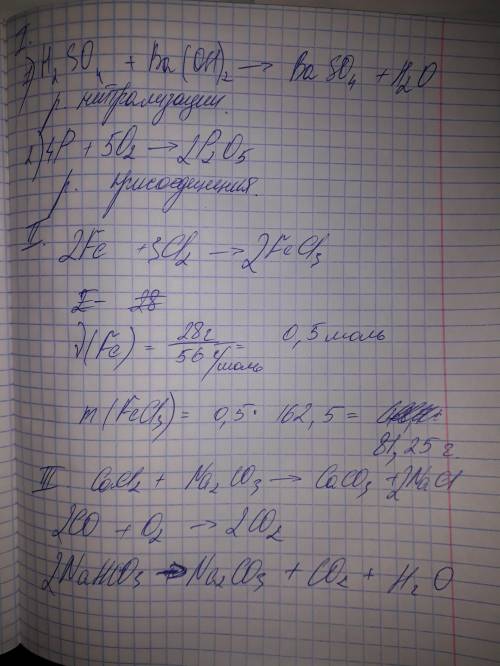 I.
1) H₂SO₄ + Ba(OH)₂ → BaSO₄ + H₂O
р. нитрализации.
2) 4P + 5O₂ → 2P₂O₅
р. присоединения.
II.
2Fe + 3Cl₂ → 2FeCl₃
ν(Fe) = 28г / 56 г/моль = 0,5 моль
m(FeCl₃) = 0,5 · 162,5 =
81,25 г
III CaCl₂ + Na₂CO₃ → CaCO₃ + 2NaCl
2CO + O₂ → 2CO₂
2NaHCO₃ → Na₂CO₃ + CO₂ + H₂O